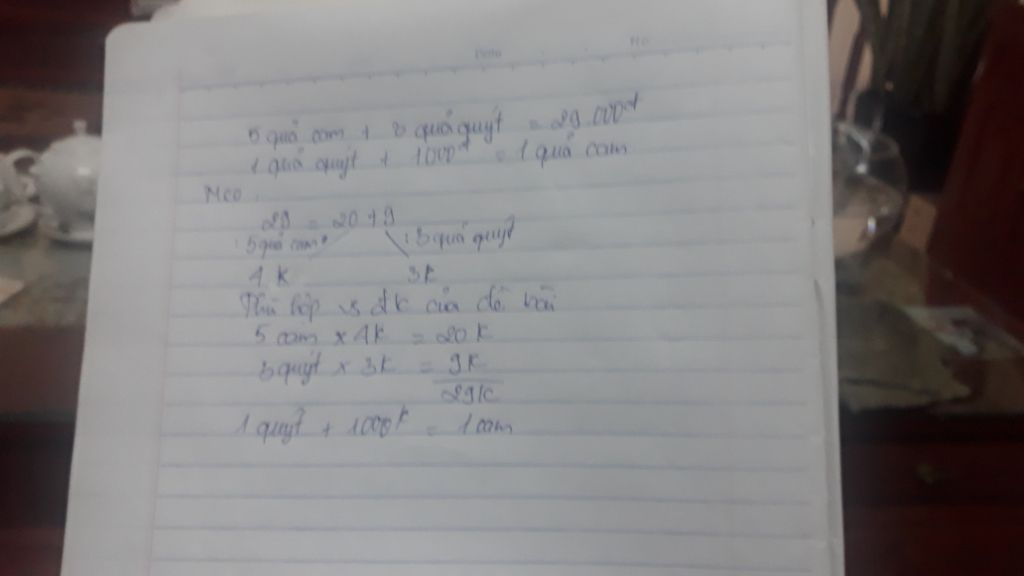 5 quả cam + 3 quả quýt = 29.000đ
1 quả quýt + 1000đ = 1 quả cam
Mẹo:
29 = 20 + 9
: 5 quả cam : 3 quả quýt
4 k 3k
Thù hợp vs đk của đề bài
5 cam x 4k = 20k
3 quýt x 3k = 9k
29k
1 quýt + 1000k = 1 cam